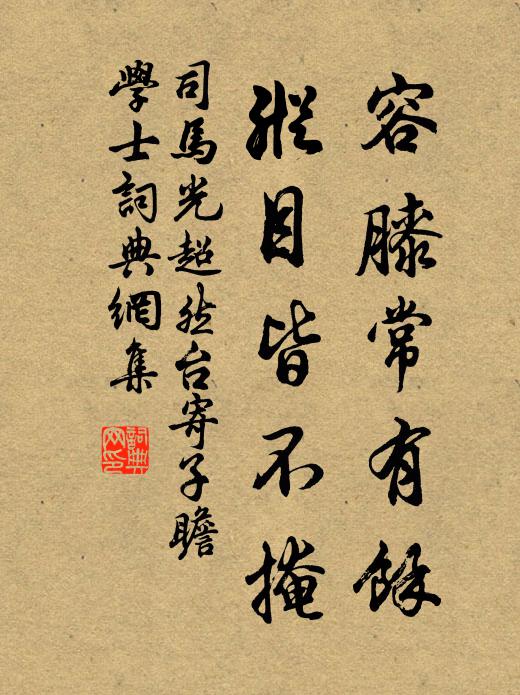 容膝常有餘
縱目皆不掩
司馬光超然台寄子瞻
學士詞典網集
詞典網印